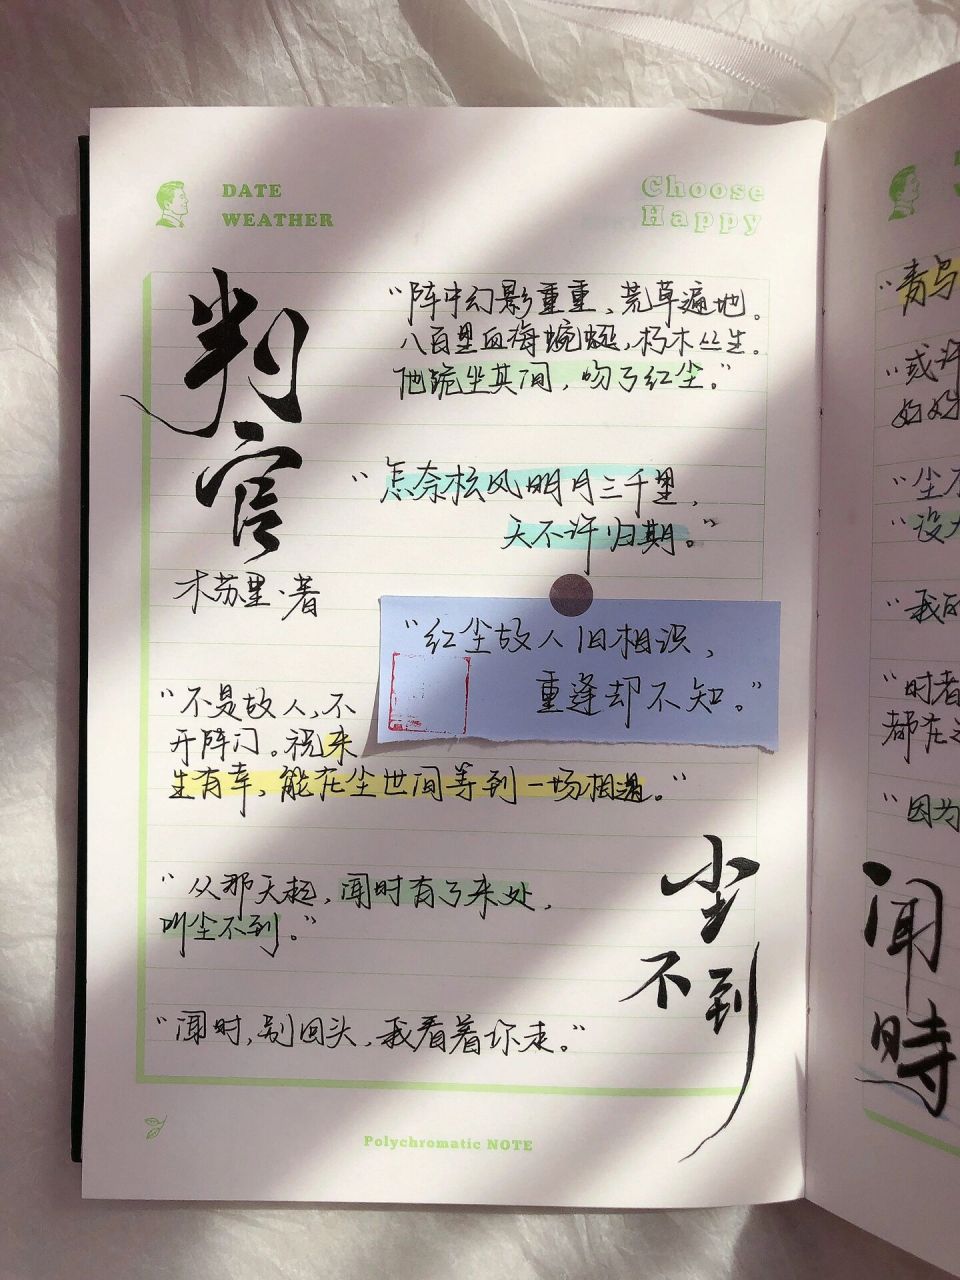 DATE
WEATHER
Choose
Happy
判官
木苏里·著
“阵中幻影重重、荒草遍地。
八百里血海蜿蜒，朽木丛生。
他跪坐其间，吻了红尘。”
“怎奈松风明月三千里，
天不许归期。”
“红尘故人旧相识，
重逢却不知。”
“不是故人，不
开阵门。祝来
生有幸，能在尘世间等到一场相遇。”
“从那天起，闻时有了来处，
叫尘不到。”
“闻时，别回头，我看着你走。”
尘不到
Polychromatic NOTE
“青鸟
“或许
好好
“尘不
“没
“我的
“时者
都在
“因为
闻時